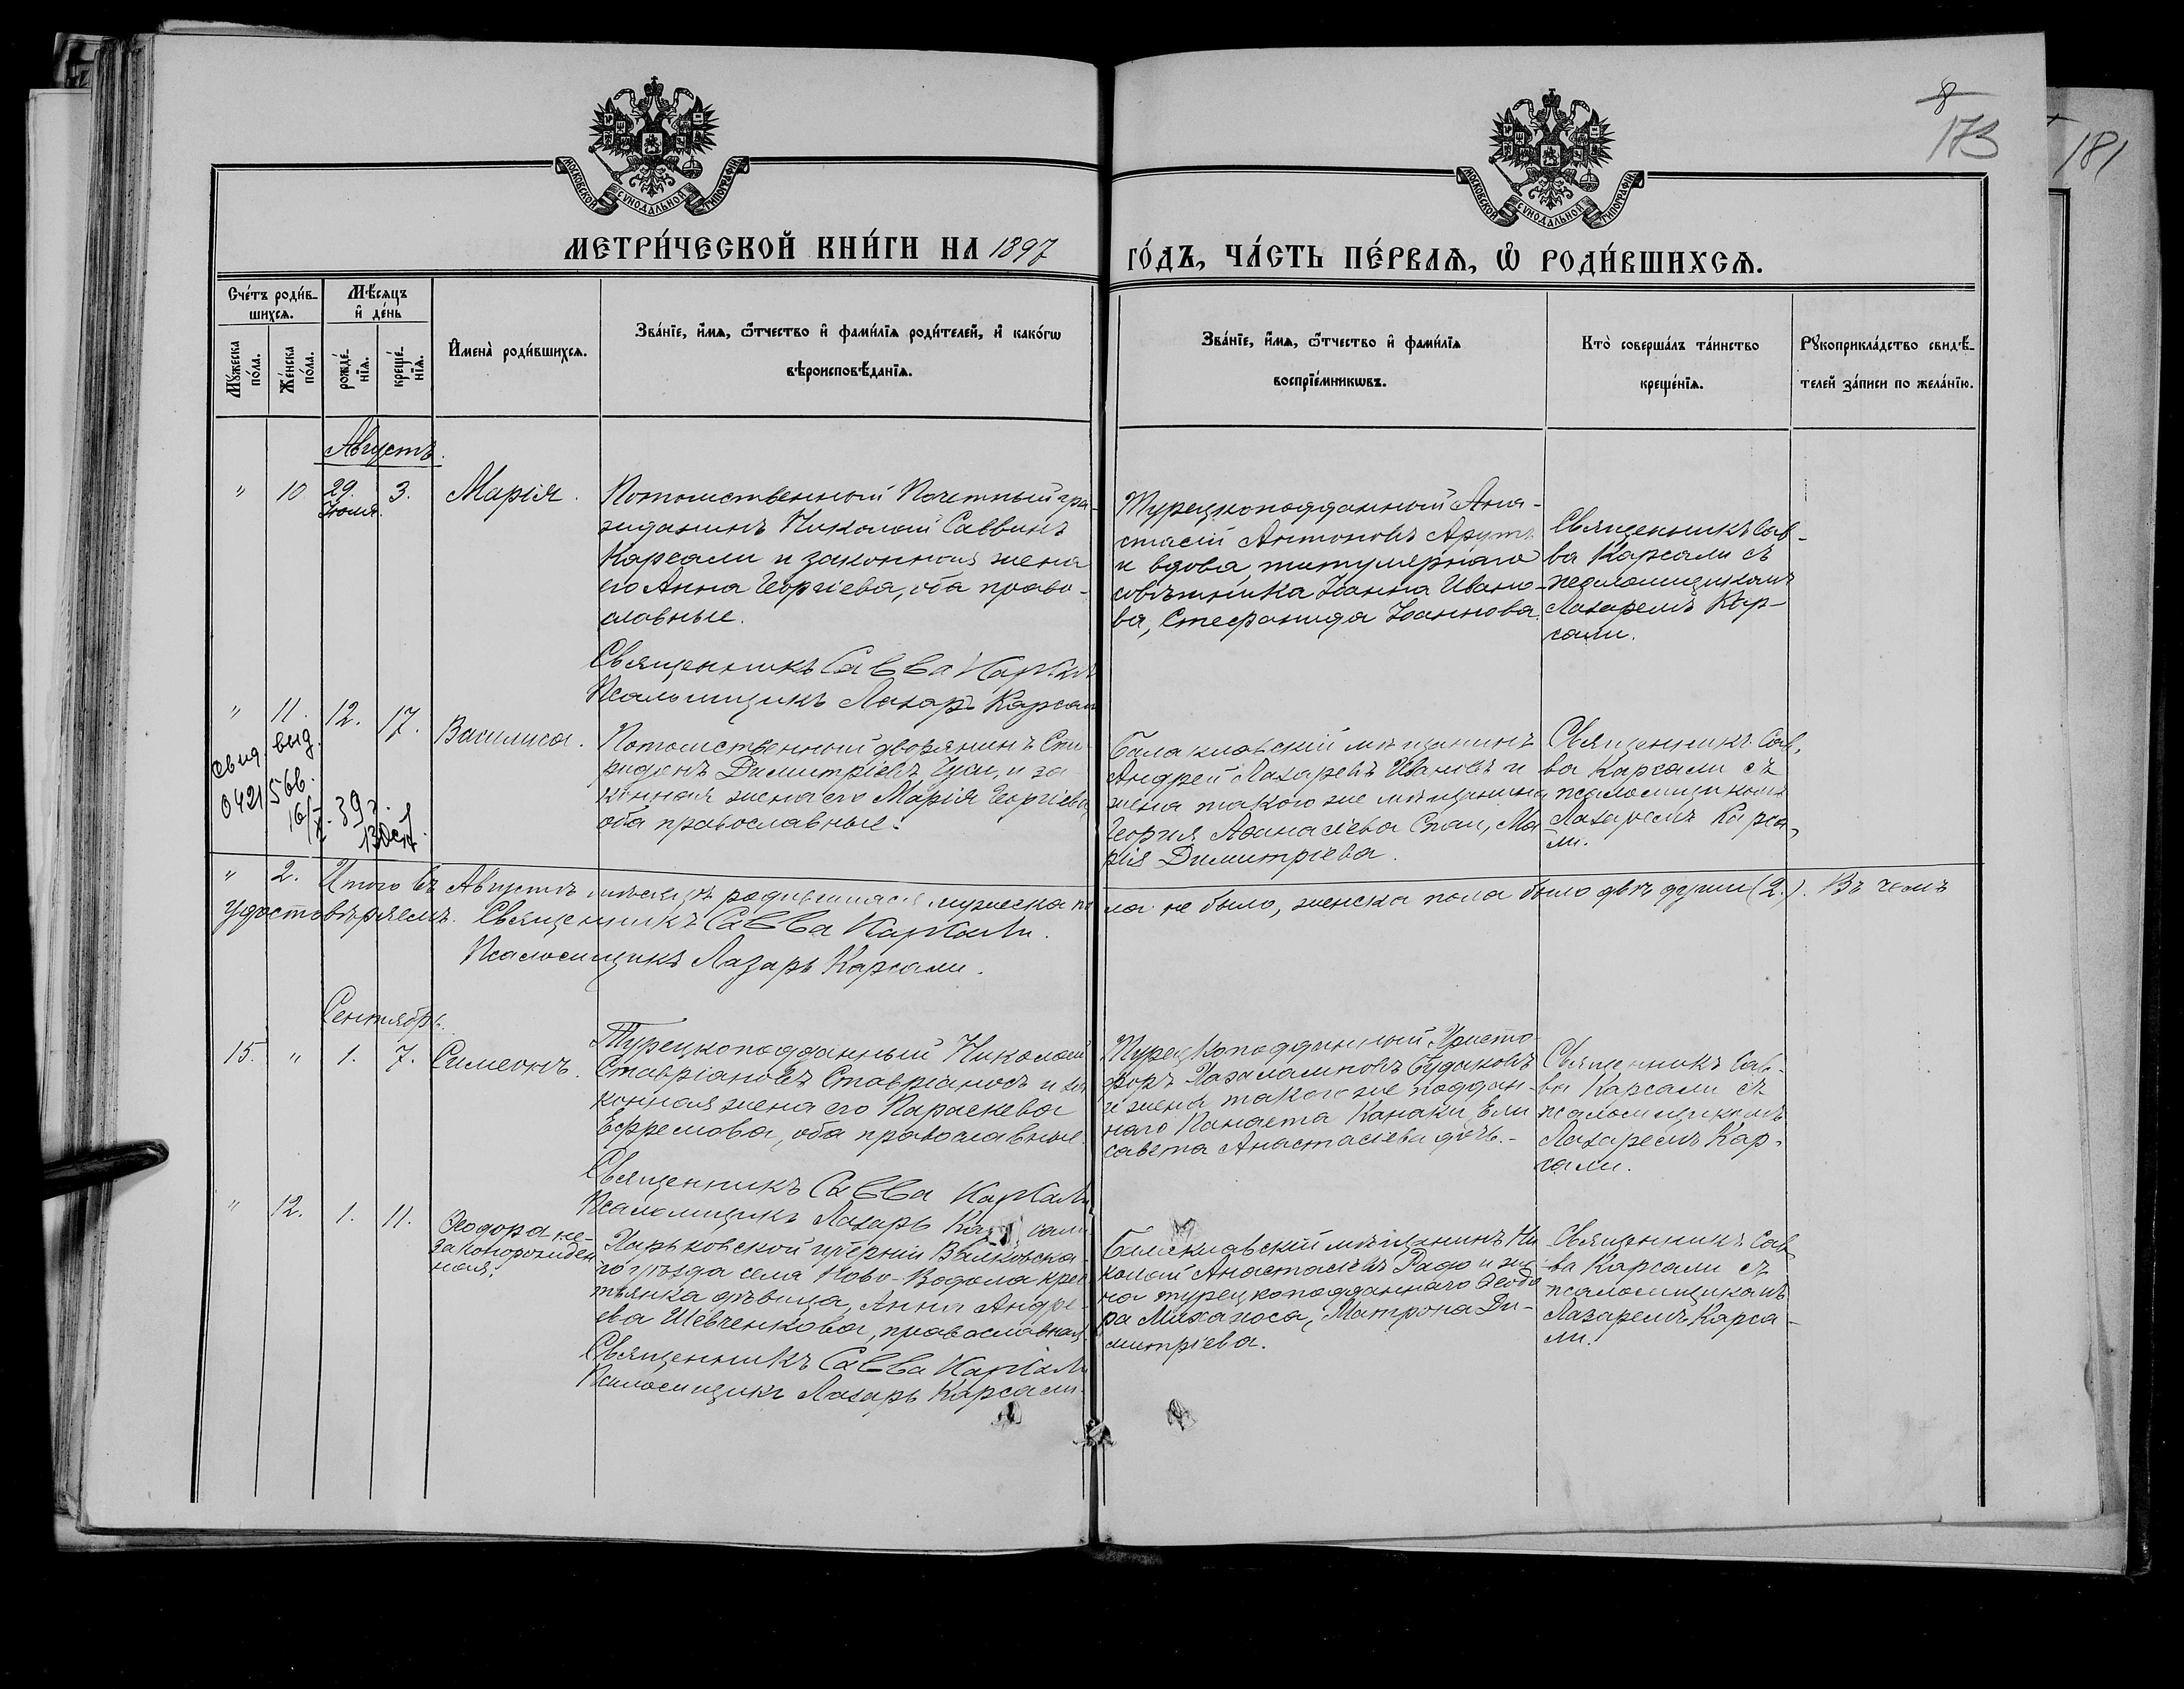 8
173
181
МОСКОВСКОЙ СѴНОДАЛЬНОЙ ТИПОГРАФІИ
МОСКОВСКОЙ СѴНОДАЛЬНОЙ ТИПОГРАФІИ
МЕТРИ́ЧЕСКОЙ КНИ́ГИ НА 1897
ГО́ДЪ, ЧА́СТЬ ПЕ́РВАѦ, Ѡ҆ РОДИ́ВШИХСѦ.
Сче́тъ роди́в-
шихсѧ.
Мѣ́сѧцъ
и҆ де́нь
Мꙋ́жеска
по́ла.
Же́нска
по́ла.
рожде́-
нїѧ.
креще́-
нїѧ.
И҆мена̀ роди́вшихсѧ.
Зва́нїе, и҆́мѧ, ѻ҆́тчество и҆ фами́лїѧ роди́телей, и҆ како́гѡ
вѣроисповѣ́данїѧ.
Зва́нїе, и҆́мѧ, ѻ҆́тчество и҆ фами́лїѧ
воспрїе́мникѡвъ.
Кто̀ соверша́лъ та́инство
креще́нїѧ.
Рꙋкоприкла́дство свидѣ́-
телей за́писи по жела́нїю.
Августъ.
" 10 29. Іюля. 3. Марія.
Потомственный Почетный гра-
жданинъ Николай Саввинъ
Карсали и законная жена
его Анна Георгіева, оба право-
славные.
Священникъ Савва Карсали
Псаломщикъ Лазарь Карсали
Турецкоподданный Ана-
стасій Антоновъ
и вдова титулярнаго
совѣтника Іоанна Ивано-
ва, Стефанида Іоаннова.
Священникъ Сав-
ва Карсали съ
псаломщикомъ
Лазаремъ Кар-
сали.
" 11. 12. 17. Василиса.
Свид. выд.
0421566.
16/X-39 г.
Потомственный дворянинъ Спи-
ридонъ Димитріевъ Чуси, и за-
конная жена его Марія Георгіева,
оба православные.
Балаклавскій мѣщанинъ
Андрей Лазаревъ Ивановъ и
жена такого же мѣщанина
Георгія Аѳанасіева Спаи, Ма-
рія Димитріева.
Священникъ Сав-
ва Карсали съ
псаломщикомъ
Лазаремъ Карса-
ли.
" 2. Итого въ Августѣ мѣсяцѣ родившихся мужеска по-
ла не было, женска пола было двѣ души (2.). Въ чемъ
удостовѣряемъ. Священникъ Савва Карсали.
Псаломщикъ Лазарь Карсали.
Сентябрь.
15. " 1. 7. Симеонъ.
Турецкоподданный Николай
Ставріановъ Ставріаносъ и за-
конная жена его Параскева
Ефремова, оба православные.
Священникъ Савва Карсали
Псаломщикъ Лазарь Карсали
Турецкоподданный Христо-
форъ Хараламповъ Будаковъ
и жена такого же поддан-
наго Панаета Канаки Ели-
савета Анастасіева дочь.-
Священникъ Сав-
ва Карсали съ
псаломщикомъ
Лазаремъ Кар-
сали.
" 12. 1. 11. Ѳеодора не-
законорожден-
ная.
Харьковской губерніи Валковска-
го уѣзда села Ново-Водолага крес-
тьянка дѣвица, Анна Андре-
ева Шевченкова, православная
Священникъ Савва Карсали
Псаломщикъ Лазарь Карсали.
Балаклавскій мѣщанинъ Ни-
колай Анастасіевъ Радо и же-
на турецкоподданнаго Ѳеодо-
ра Михалоса, Матрона Ди-
митріева.
Священникъ Сав-
ва Карсали съ
псаломщикомъ
Лазаремъ Карса-
ли.